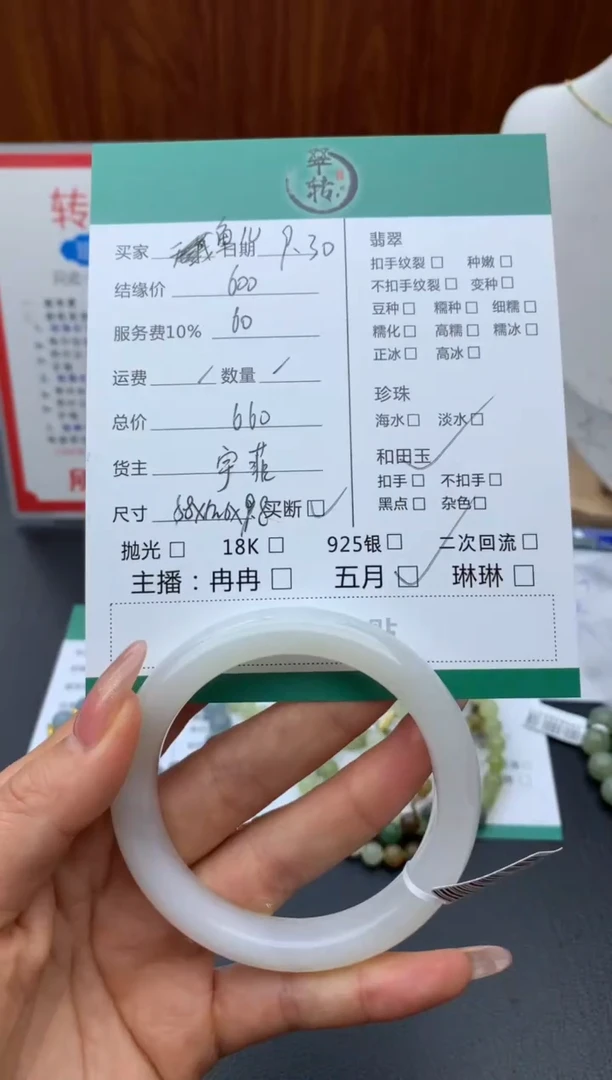 翠
转
买家 日期 9.30
结缘价 600
服务费10% 60
运费 / 数量 /
总价 660
货主 宇菲
尺寸 买断 ☐
翡翠
扣手纹裂 ☐ 种嫩 ☐
不扣手纹裂 ☐ 变种 ☐
豆种 ☐ 糯种 ☐ 细糯 ☐
糯化 ☐ 高糯 ☐ 糯冰 ☐
正冰 ☐ 高冰 ☐
珍珠
海水 ☐ 淡水 ☐
和田玉
扣手 ☐ 不扣手 ☐
黑点 ☐ 杂色 ☐
抛光 ☐ 18K ☐ 925银 ☐ 二次回流 ☐
主播：冉冉 ☐ 五月 ☐ 琳琳 ☐
转